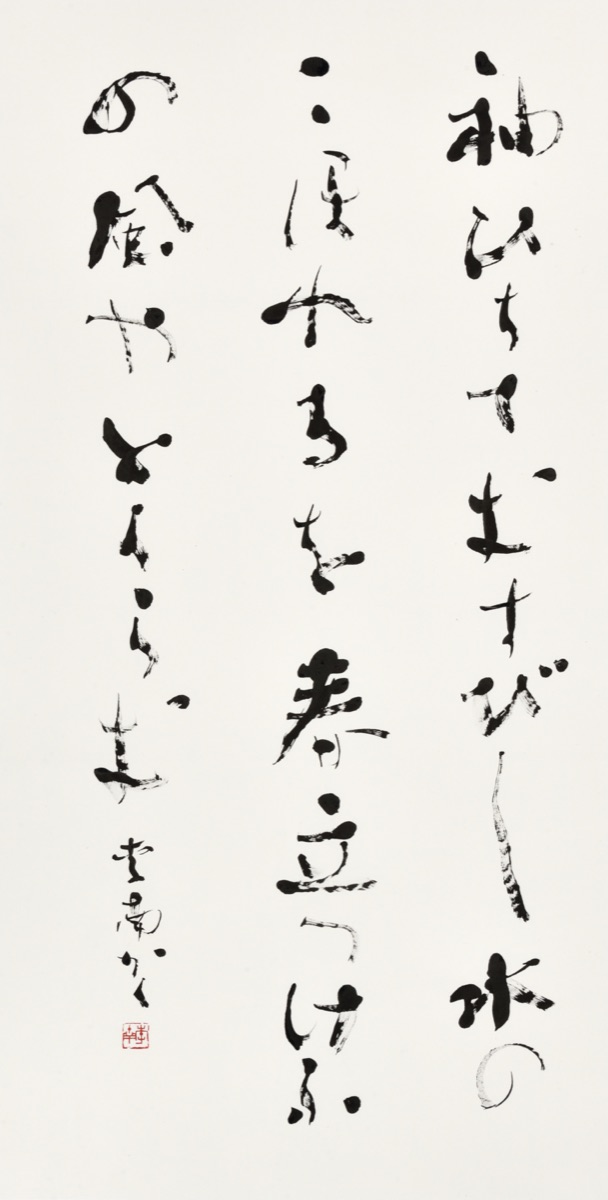 袖ひちてむすびし水の
こほれるを春立つけふ
の風やとくらむ
南かく